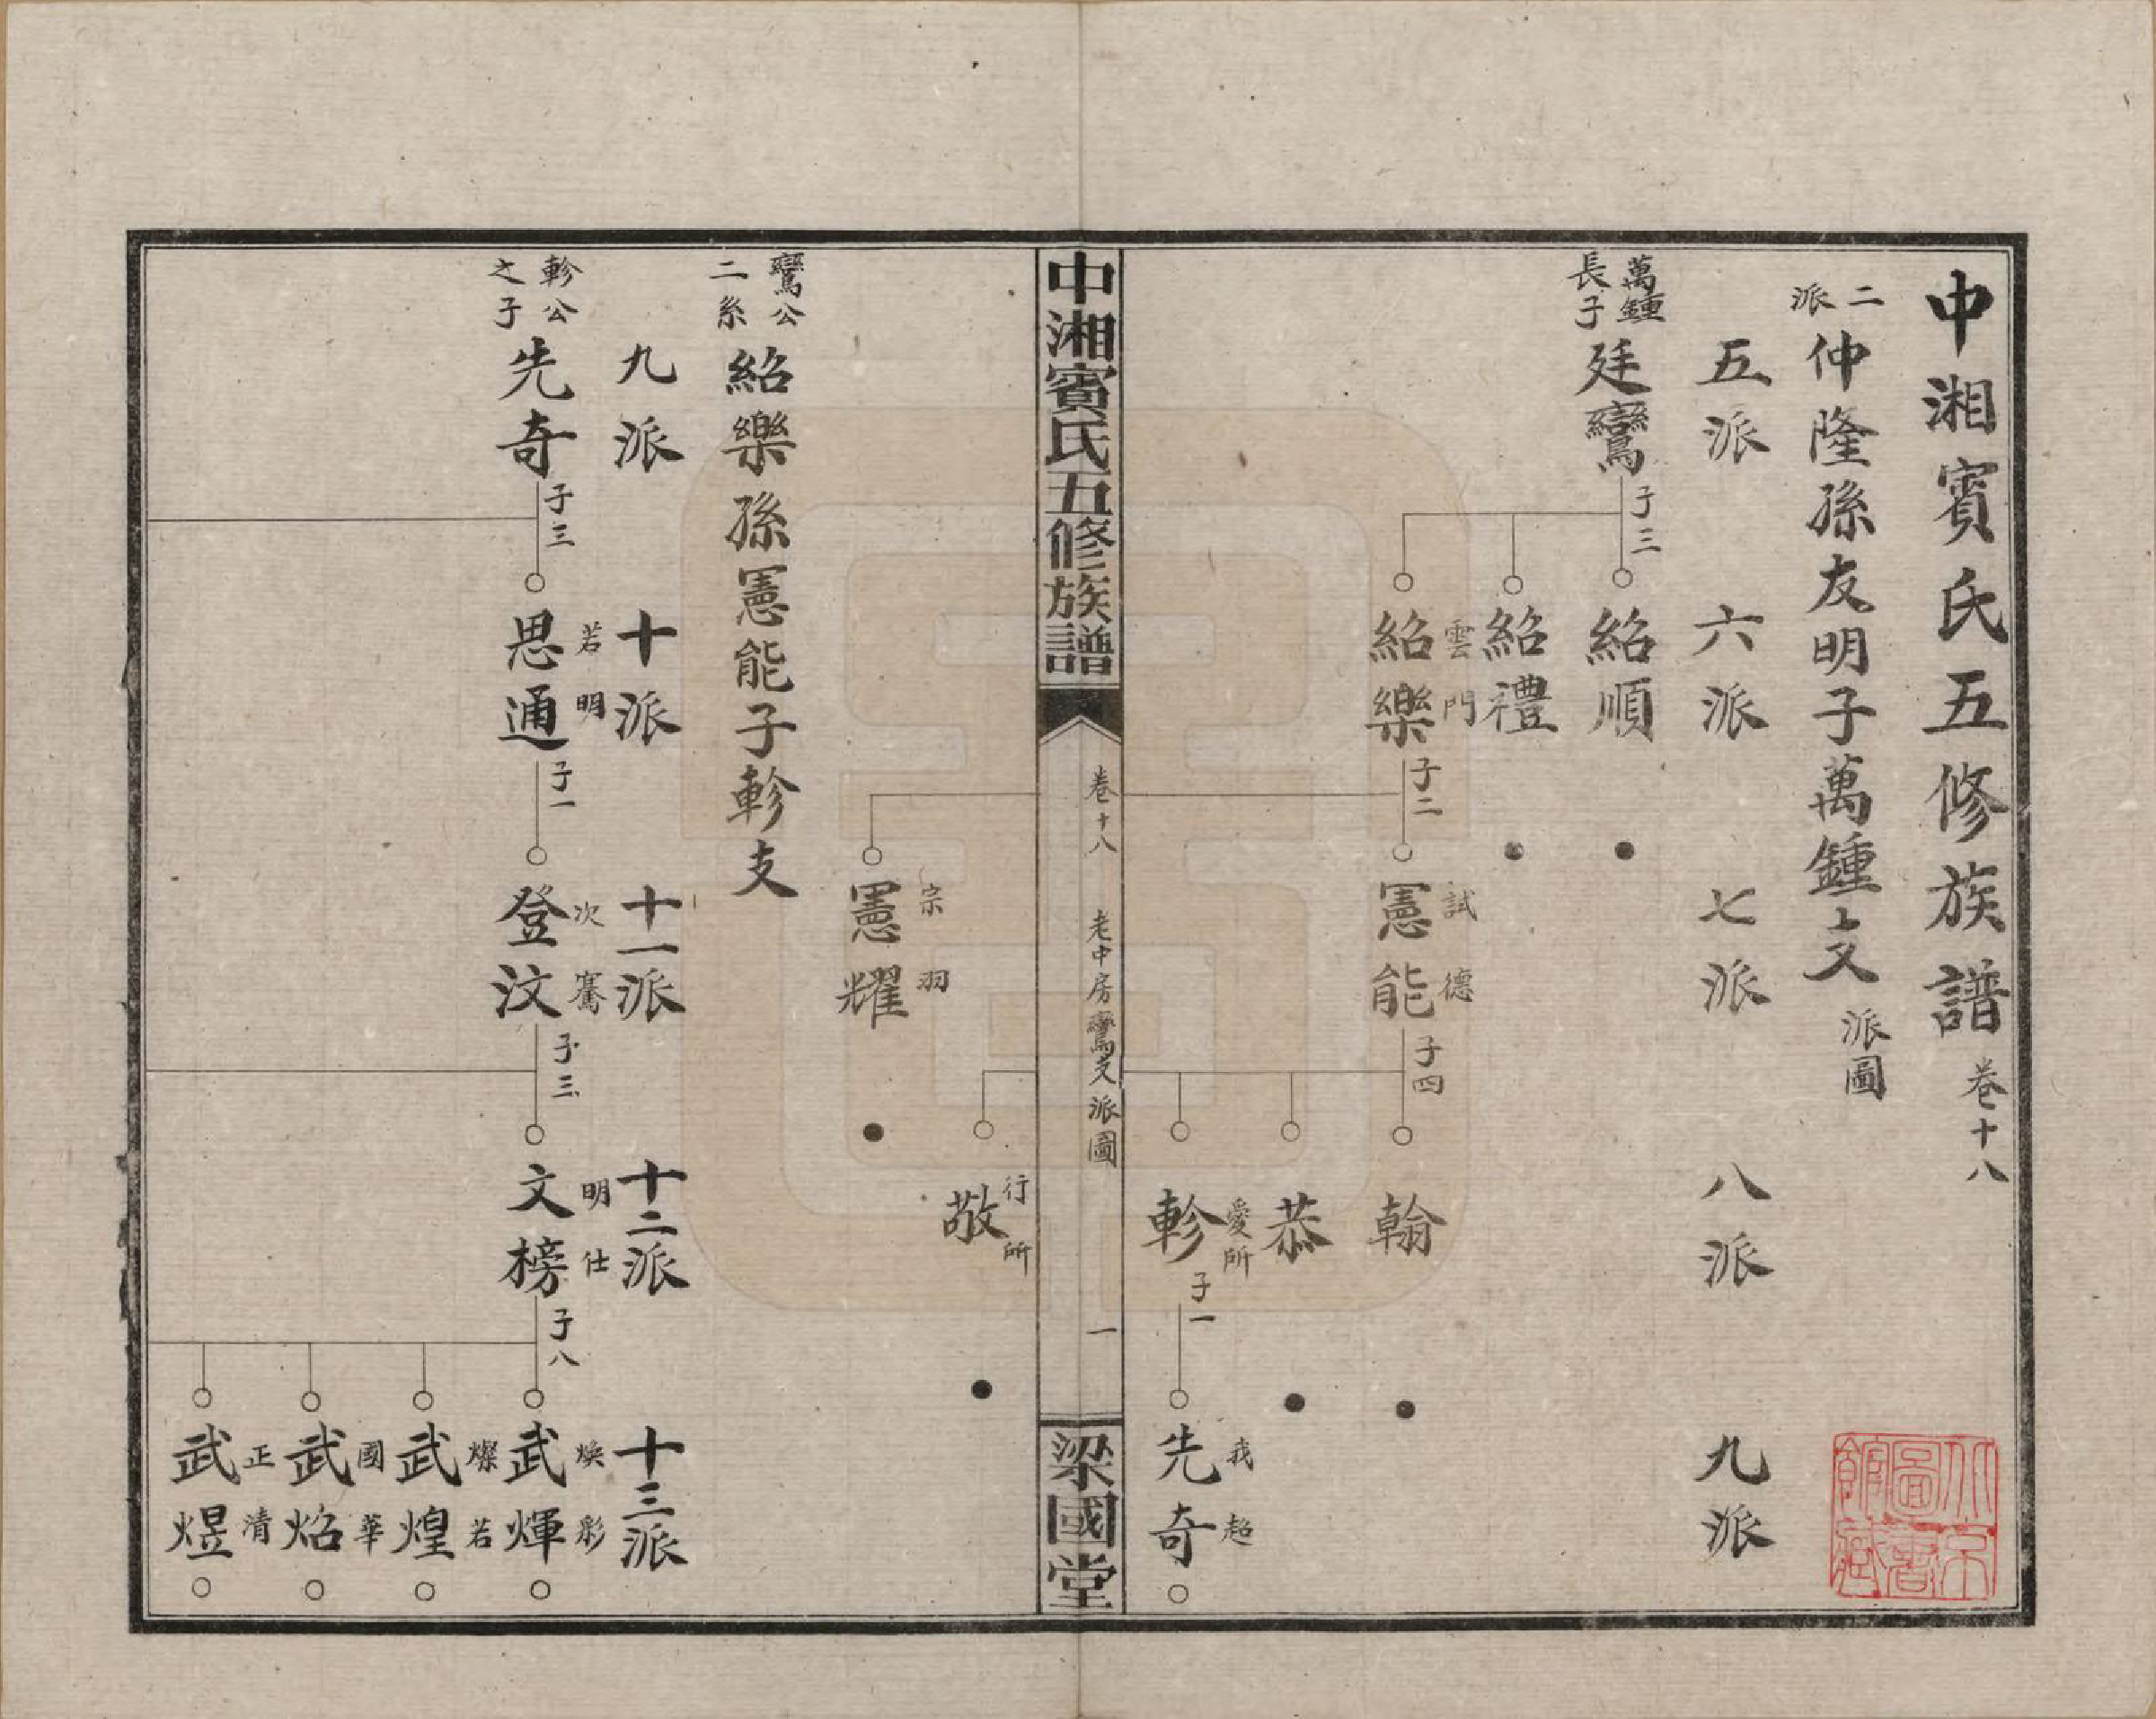 中湘賓氏五修族譜 卷十八
二派 仲隆孫友明子萬鍾支 派圖
五派 六派 七派 八派 九派
萬鍾長子 廷鸞 子三
紹順
紹禮
雲門 紹樂 子二
試德 憲能 子四
翰
恭
愛所 軫 子一
我超 先奇
中湘賓氏五修族譜 卷十八 老中房鸞支派圖 一 梁國堂
行所 敬
宗羽 憲耀
鸞公二系 紹樂孫憲能子軫支
九派 十派 十一派 十二派 十三派
軫公之子 先奇 子三
若明 思通 子一
次騫 登汶 子三
明仕 文榜 子八
煥彩 武煇
燦若 武煌
國華 武焰
正清 武煜
北京圖書館藏